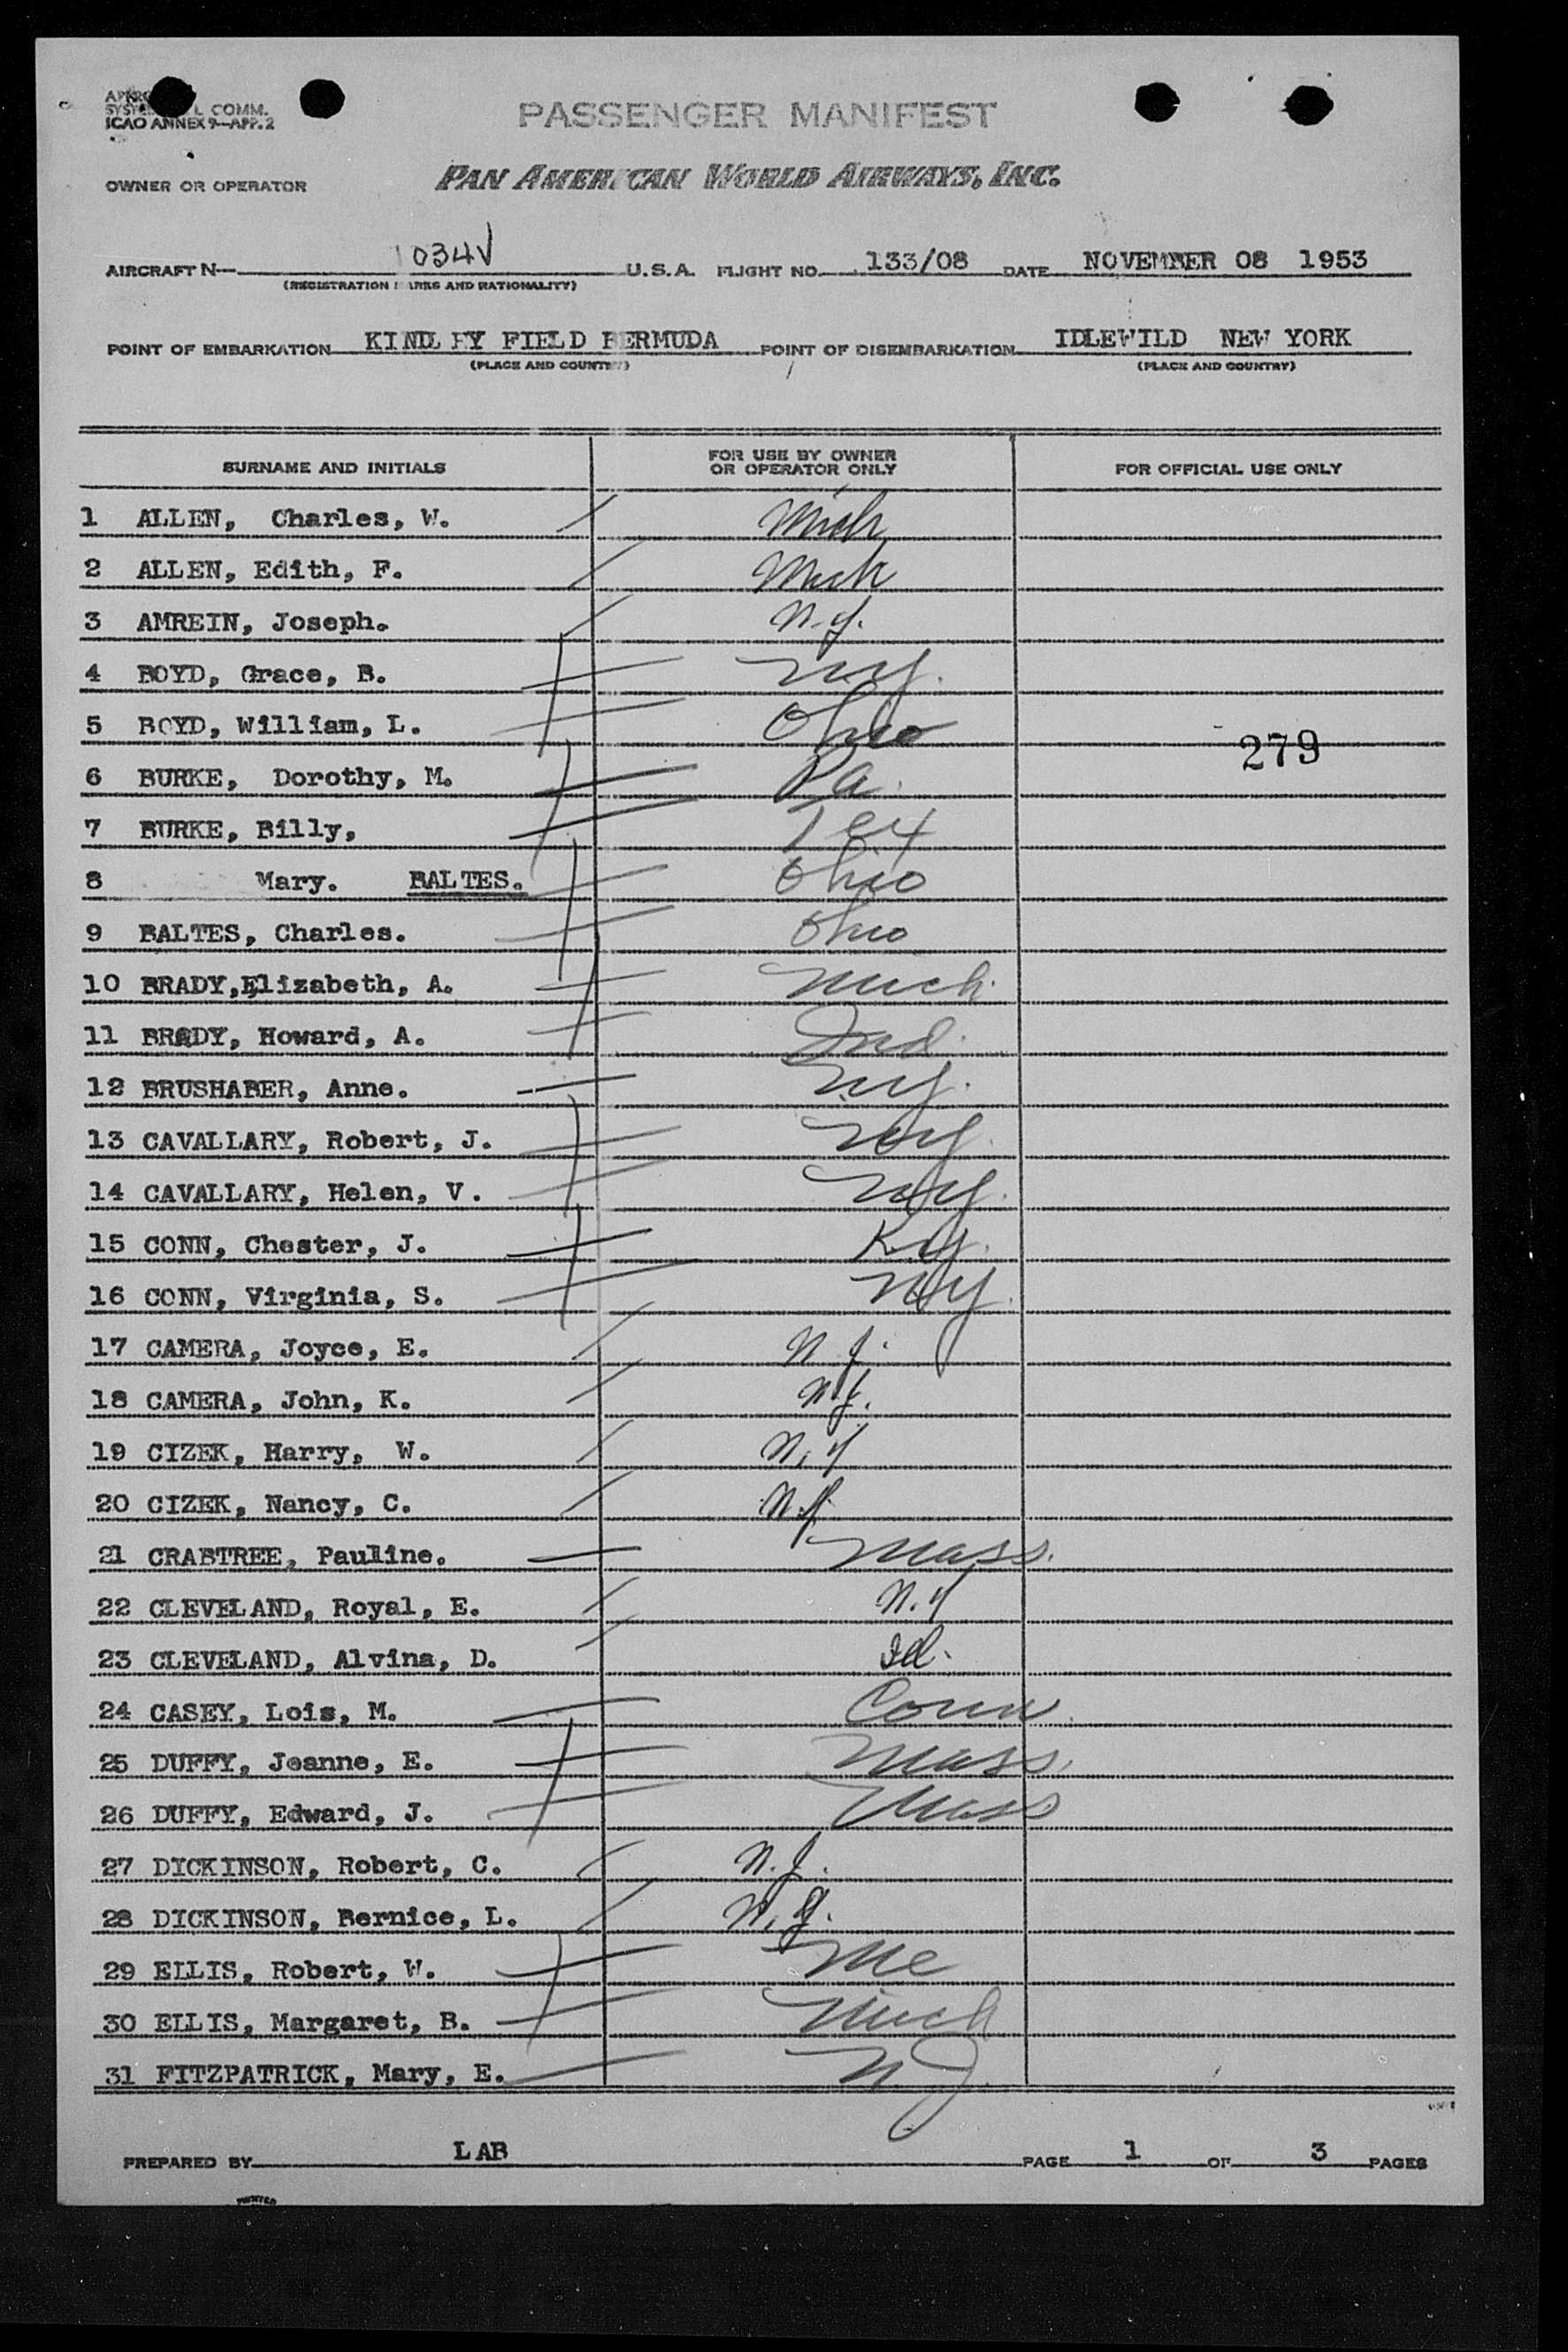 SYSTE L COMM.
ICAO ANNEX 9—APP. 2
PASSENGER MANIFEST
OWNER OR OPERATOR PAN AMERICAN WORLD AIRWAYS, INC.
AIRCRAFT N— 1034V U.S.A. FLIGHT NO. 133/08 DATE NOVEMBER 08 1953
(REGISTRATION MARKS AND NATIONALITY)
POINT OF EMBARKATION KINDLEY FIELD BERMUDA POINT OF DISEMBARKATION IDLEWILD NEW YORK
(PLACE AND COUNTRY) (PLACE AND COUNTRY)
SURNAME AND INITIALS FOR USE BY OWNER OR OPERATOR ONLY FOR OFFICIAL USE ONLY
1 ALLEN, Charles, W. Mich
2 ALLEN, Edith, F. Mich
3 AMREIN, Joseph. N.Y.
4 BOYD, Grace, B. NY.
5 BOYD, William, L. Ohio
279
6 BURKE, Dorothy, M. Pa.
7 BURKE, Billy, Tex
8 Mary. BALTES. Ohio
9 BALTES, Charles. Ohio
10 BRADY, Elizabeth, A. Mich.
11 BRADY, Howard, A. Ind.
12 BRUSHABER, Anne. NY.
13 CAVALLARY, Robert, J. NY.
14 CAVALLARY, Helen, V. NY.
15 CONN, Chester, J. Ky.
16 CONN, Virginia, S. NY.
17 CAMERA, Joyce, E. N.J.
18 CAMERA, John, K. N.J.
19 CIZEK, Harry, W. N.Y
20 CIZEK, Nancy, C.
21 CRABTREE, Pauline. Mass.
22 CLEVELAND, Royal, E. N.Y
23 CLEVELAND, Alvina, D.
24 CASEY, Lois, M. Conn.
25 DUFFY, Jeanne, E. Mass.
26 DUFFY, Edward, J. Mass
27 DICKINSON, Robert, C. N.J.
28 DICKINSON, Bernice, L. N.J.
29 ELLIS, Robert, W. Me
30 ELLIS, Margaret, B. Mich
31 FITZPATRICK, Mary, E. NJ.
PREPARED BY LAB PAGE 1 OF 3 PAGES